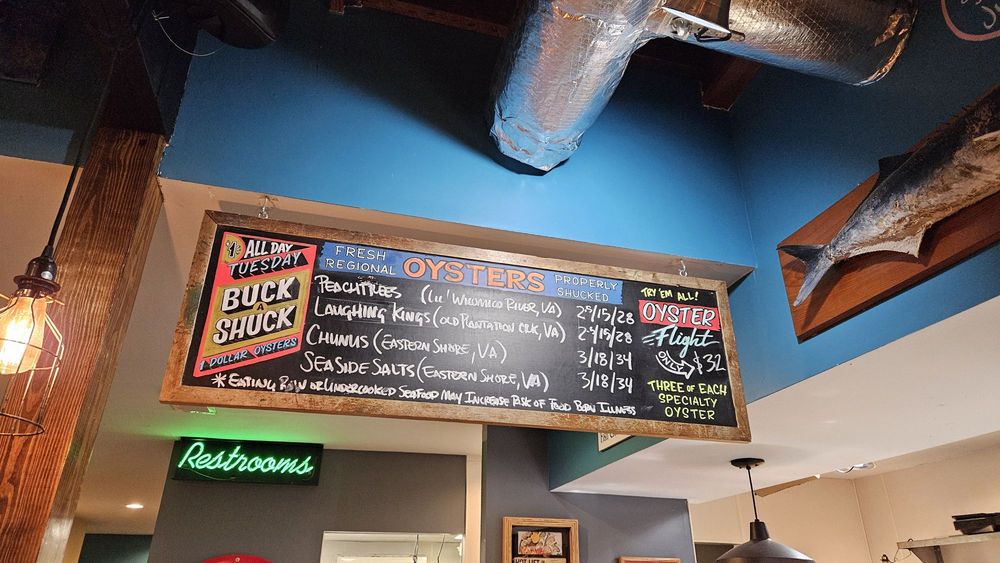 $1 ALL DAY
TUESDAY
BUCK
A
SHUCK
1 DOLLAR OYSTERS
FRESH
REGIONAL
OYSTERS
PROPERLY
SHUCKED
LAUGHING KINGS (OLD PLANTATION CRK, VA)
CHUNUS (EASTERN SHORE, VA) 3/18/34
SEASIDE SALTS (EASTERN SHORE, VA) 3/18/34
*EATING RAW OR UNDERCOOKED SEAFOOD MAY INCREASE RISK OF FOOD BORN ILLNESS
TRY 'EM ALL!
OYSTER
Flight
ONLY $32
THREE OF EACH
SPECIALTY
OYSTER
Restrooms